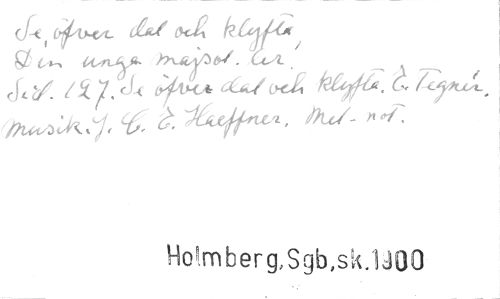 Se, öfver dal och klyfta,
Din unga majsol ler.
Sid. 127. Se öfver dal och klyfta. E. Tegnér.
Musik. J. C. F. Haeffner. Mel-not.
Holmberg, Sgb, sk. 1900